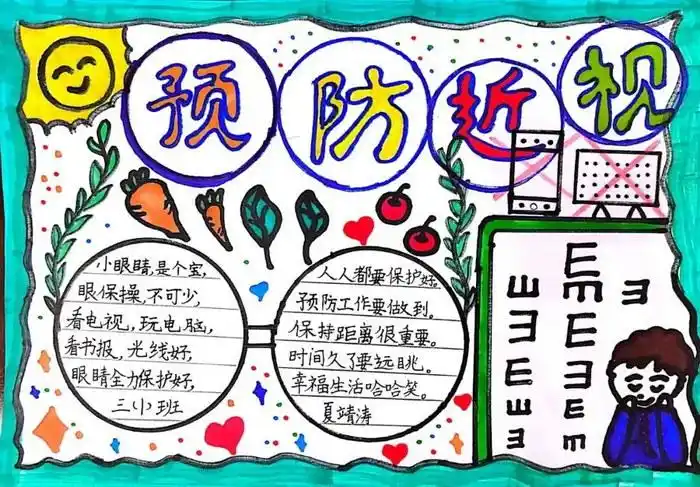 预防近视
小眼睛,是个宝,
眼保操,不可少,
看电视,玩电脑,
看书报,光线好,
眼睛全力保护好,
三(小)班
人人都要保护好。
预防工作要做到。
保持距离很重要。
时间久了要远眺。
幸福生活哈哈笑。
夏靖涛